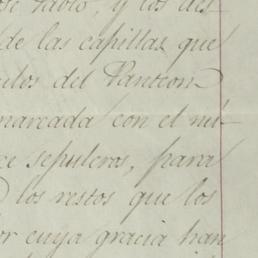 Pablo, y los des-
de las capillas que
del Panteon
marcada con el nú-
ce sepulcros, para
los restos que los
or cuya gracia han